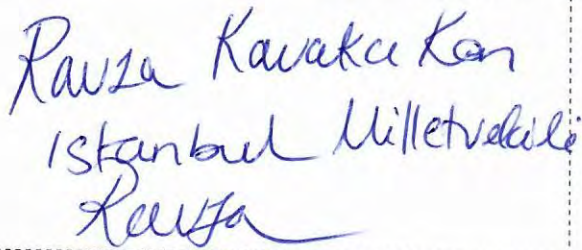 Ravza Kavakcı Kan
Istanbul Milletvekili
Ravza